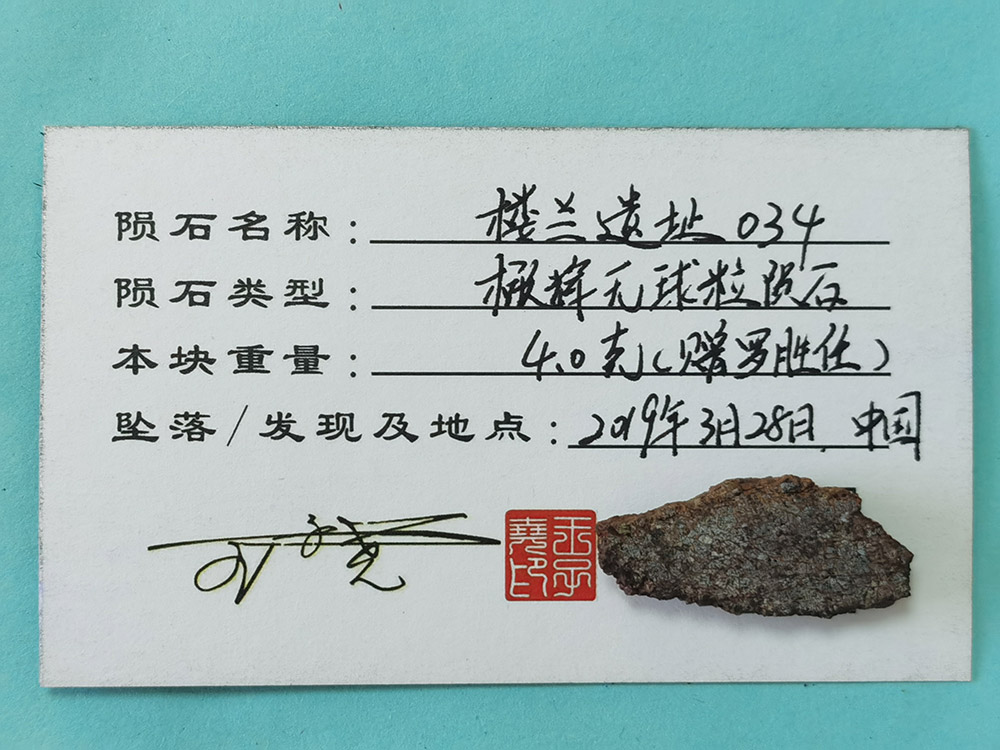 陨石名称：楼兰遗址034
陨石类型：橄辉无球粒陨石
本块重量：4.0克（赠罗胜任）
坠落/发现及地点：2019年3月28日 中国
王子尧印